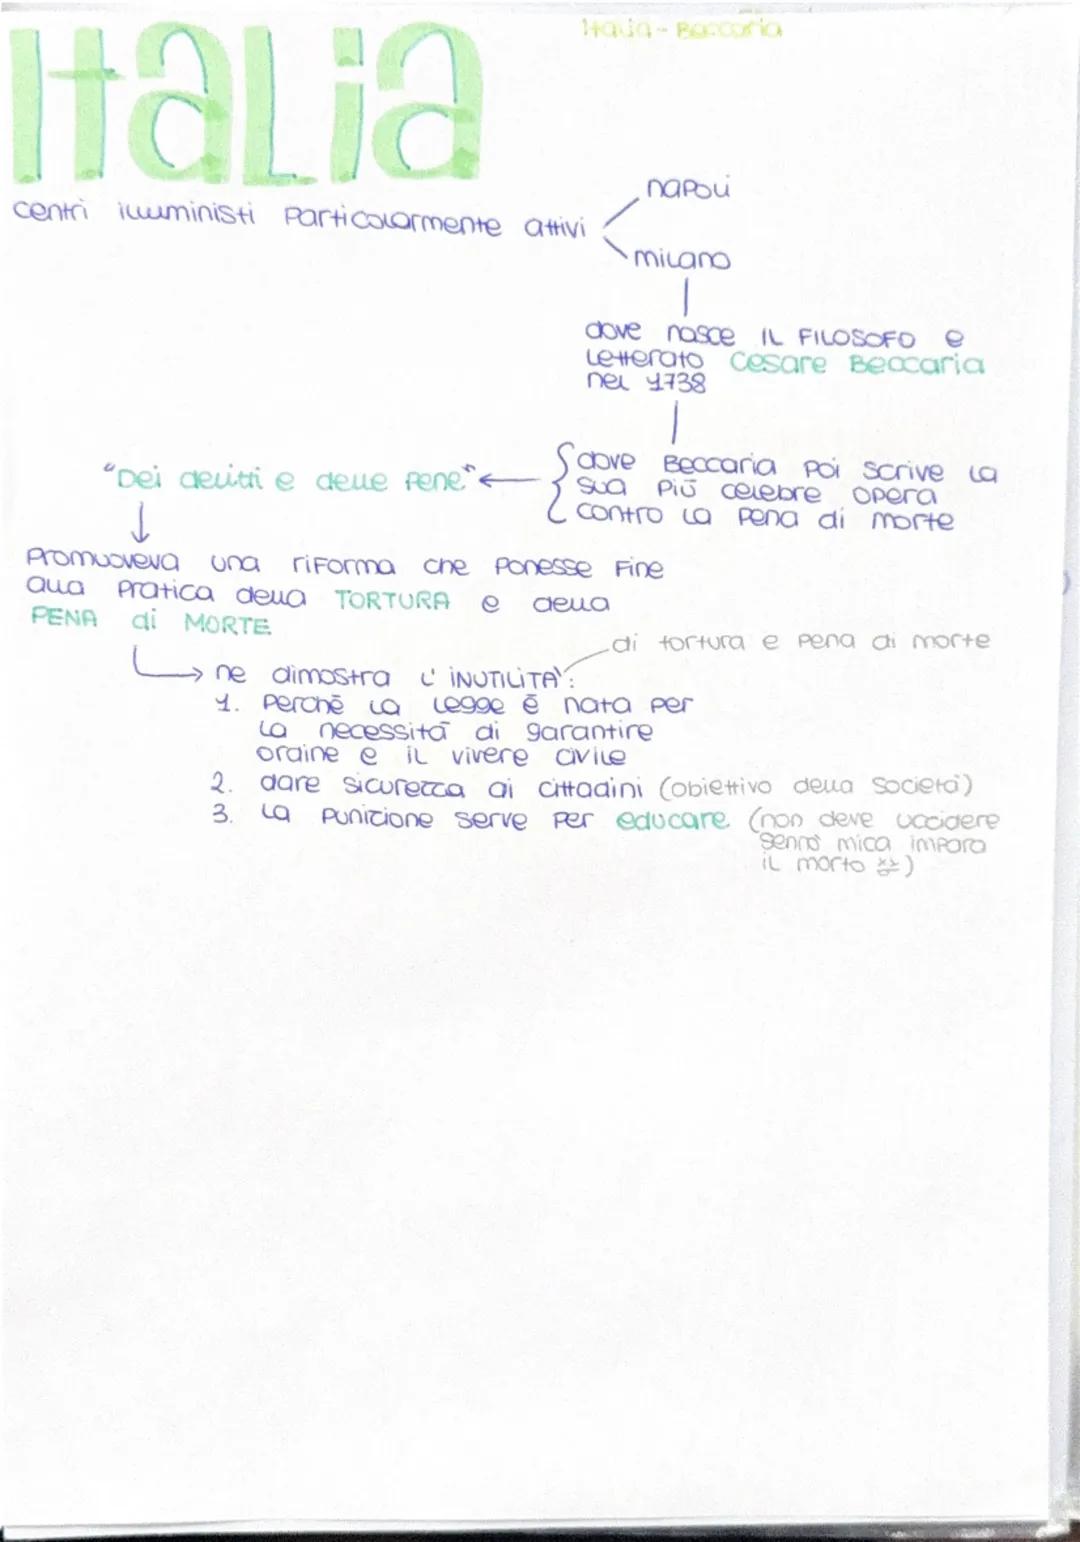 Italia - Beccaria
Italia
napoli
centri illuministi particolarmente attivi
milano
dove nasce il filosofo e
letterato Cesare Beccaria
nel 1738
dove Beccaria poi scrive la
sua più celebre opera
contro la pena di morte
"Dei delitti e delle pene"
promuoveva una riforma che ponesse fine
alla pratica della TORTURA e della
PENA di MORTE
di tortura e pena di morte
ne dimostra l'INUTILITÀ:
1. perché la legge è nata per
la necessità di garantire
ordine e il vivere civile
2. dare sicurezza ai cittadini (obiettivo della società)
3. la punizione serve per educare (non deve uccidere
sennò mica impara
il morto xx)